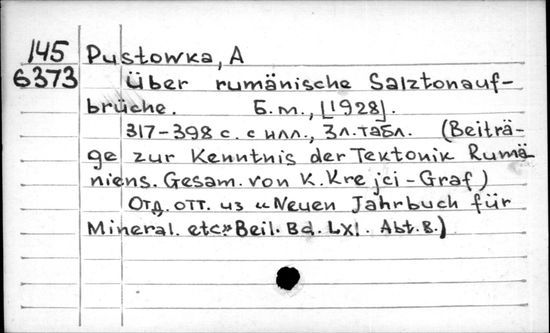 145 Pustowka, A
6373 Über rumänische Salztonauf-
brüche. Б.м., [1928].
317-398 с. с илл., 3л.табл. (Beiträ-
ge zur Kenntnis der Tektonik Rumä-
niens. Gesam. von K. Krejci-Graf)
Отд. отт. из "Neuen Jahrbuch für
Mineral. etc." Beil. Bd. LXI. Abt. B.)